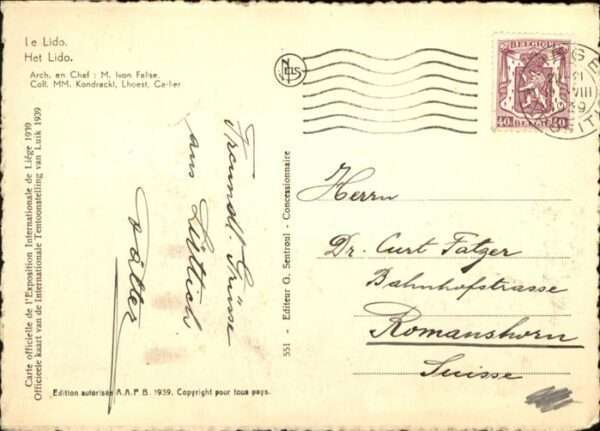 Le Lido.
Het Lido.
Arch. en Chef : M. Ivon Falise.
Coll. MM. Kondracki, Lhoest, Carlier
Carte officielle de l'Exposition Internationale de Liége 1939
Officieele kaart van de Internationale Tentoonstelling van Luik 1939
Freundl. Grüsse
aus Lüttich
Edition autorisée A.A.P B. 1939. Copyright pour tous pays.
551 - Editeur G. Sentroul - Concessionnaire
BELGIQUE
40 BELGIE 40
21
VIII
Herrn
Dr. Curt Fatzer
Bahnhofstrasse
Romanshorn
Suisse